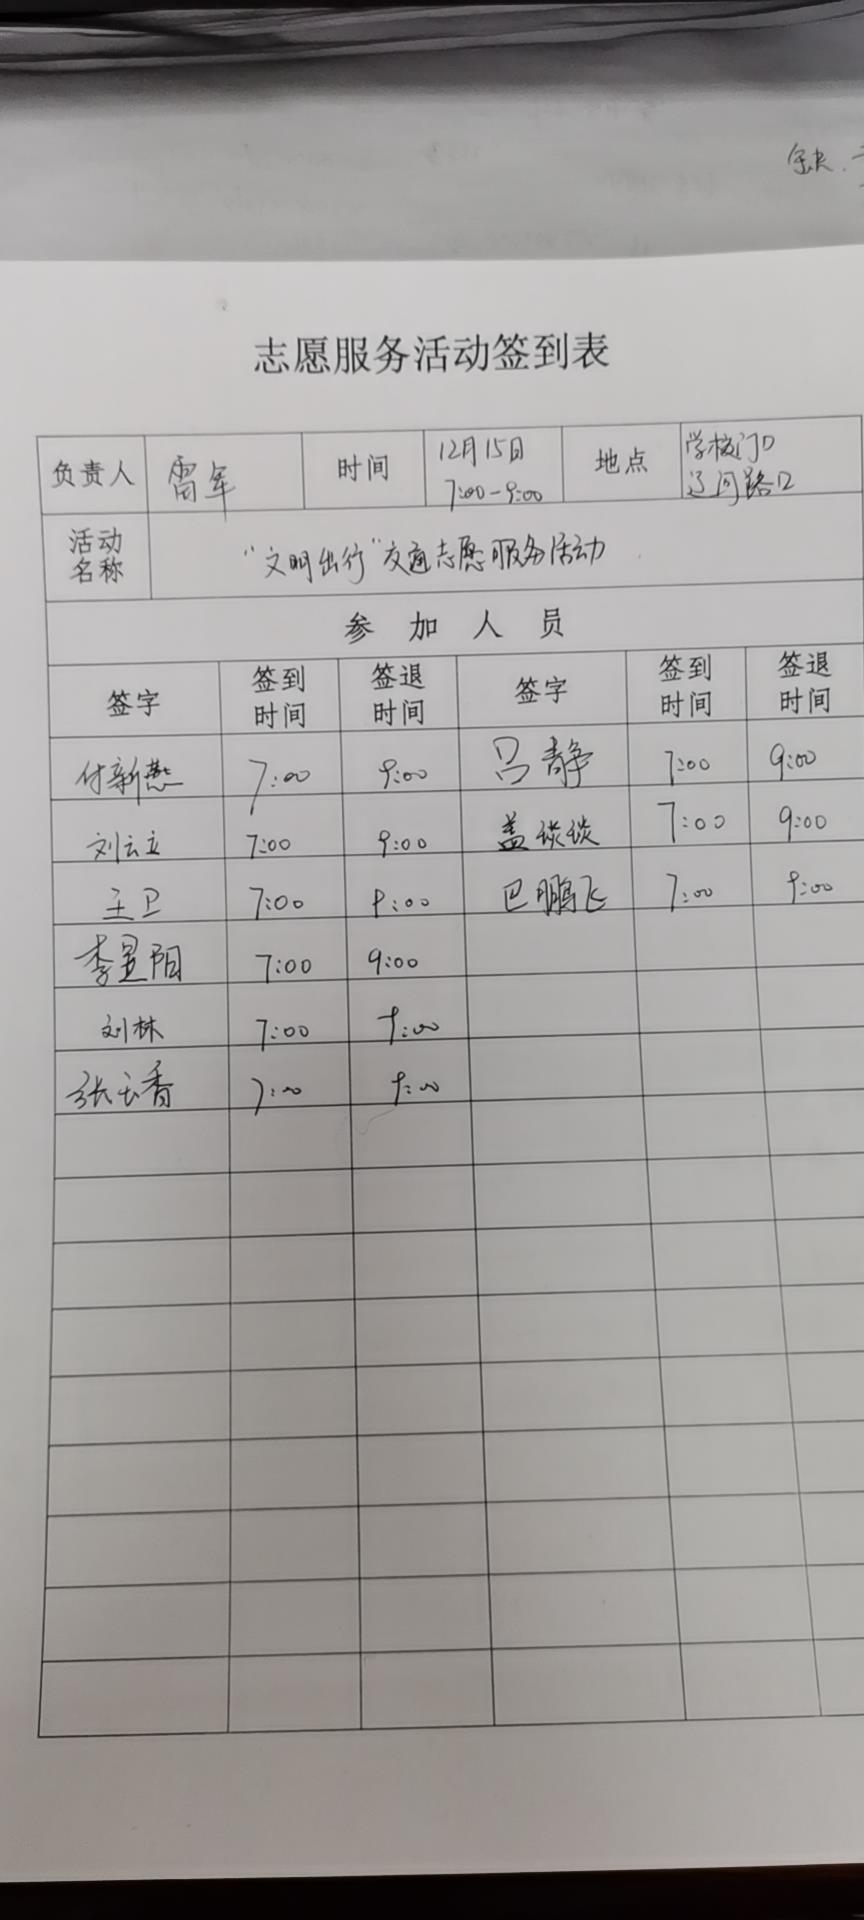 缺
志愿服务活动签到表
负责人 雷军 时间 12月15日 7:00-9:00 地点 学校门口 辽河路口
活动名称 “文明出行”交通志愿服务活动
参加人员
签字 签到时间 签退时间 签字 签到时间 签退时间
付新燕 7:00 9:00 吕静 7:00 9:00
刘云立 7:00 9:00 盖谈谈 7:00 9:00
王卫 7:00 9:00 巴鹏飞 7:00 9:00
李昱阳 7:00 9:00
刘林 7:00 9:00
张云香 7:00 9:00